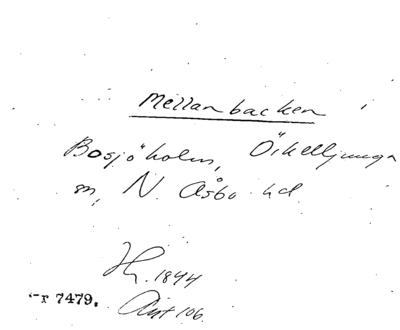 Mellanbacken
Bosjöholm, Örkelljunga
sn, N. Åsbo hd
1844
-r 7479. Ant 106.